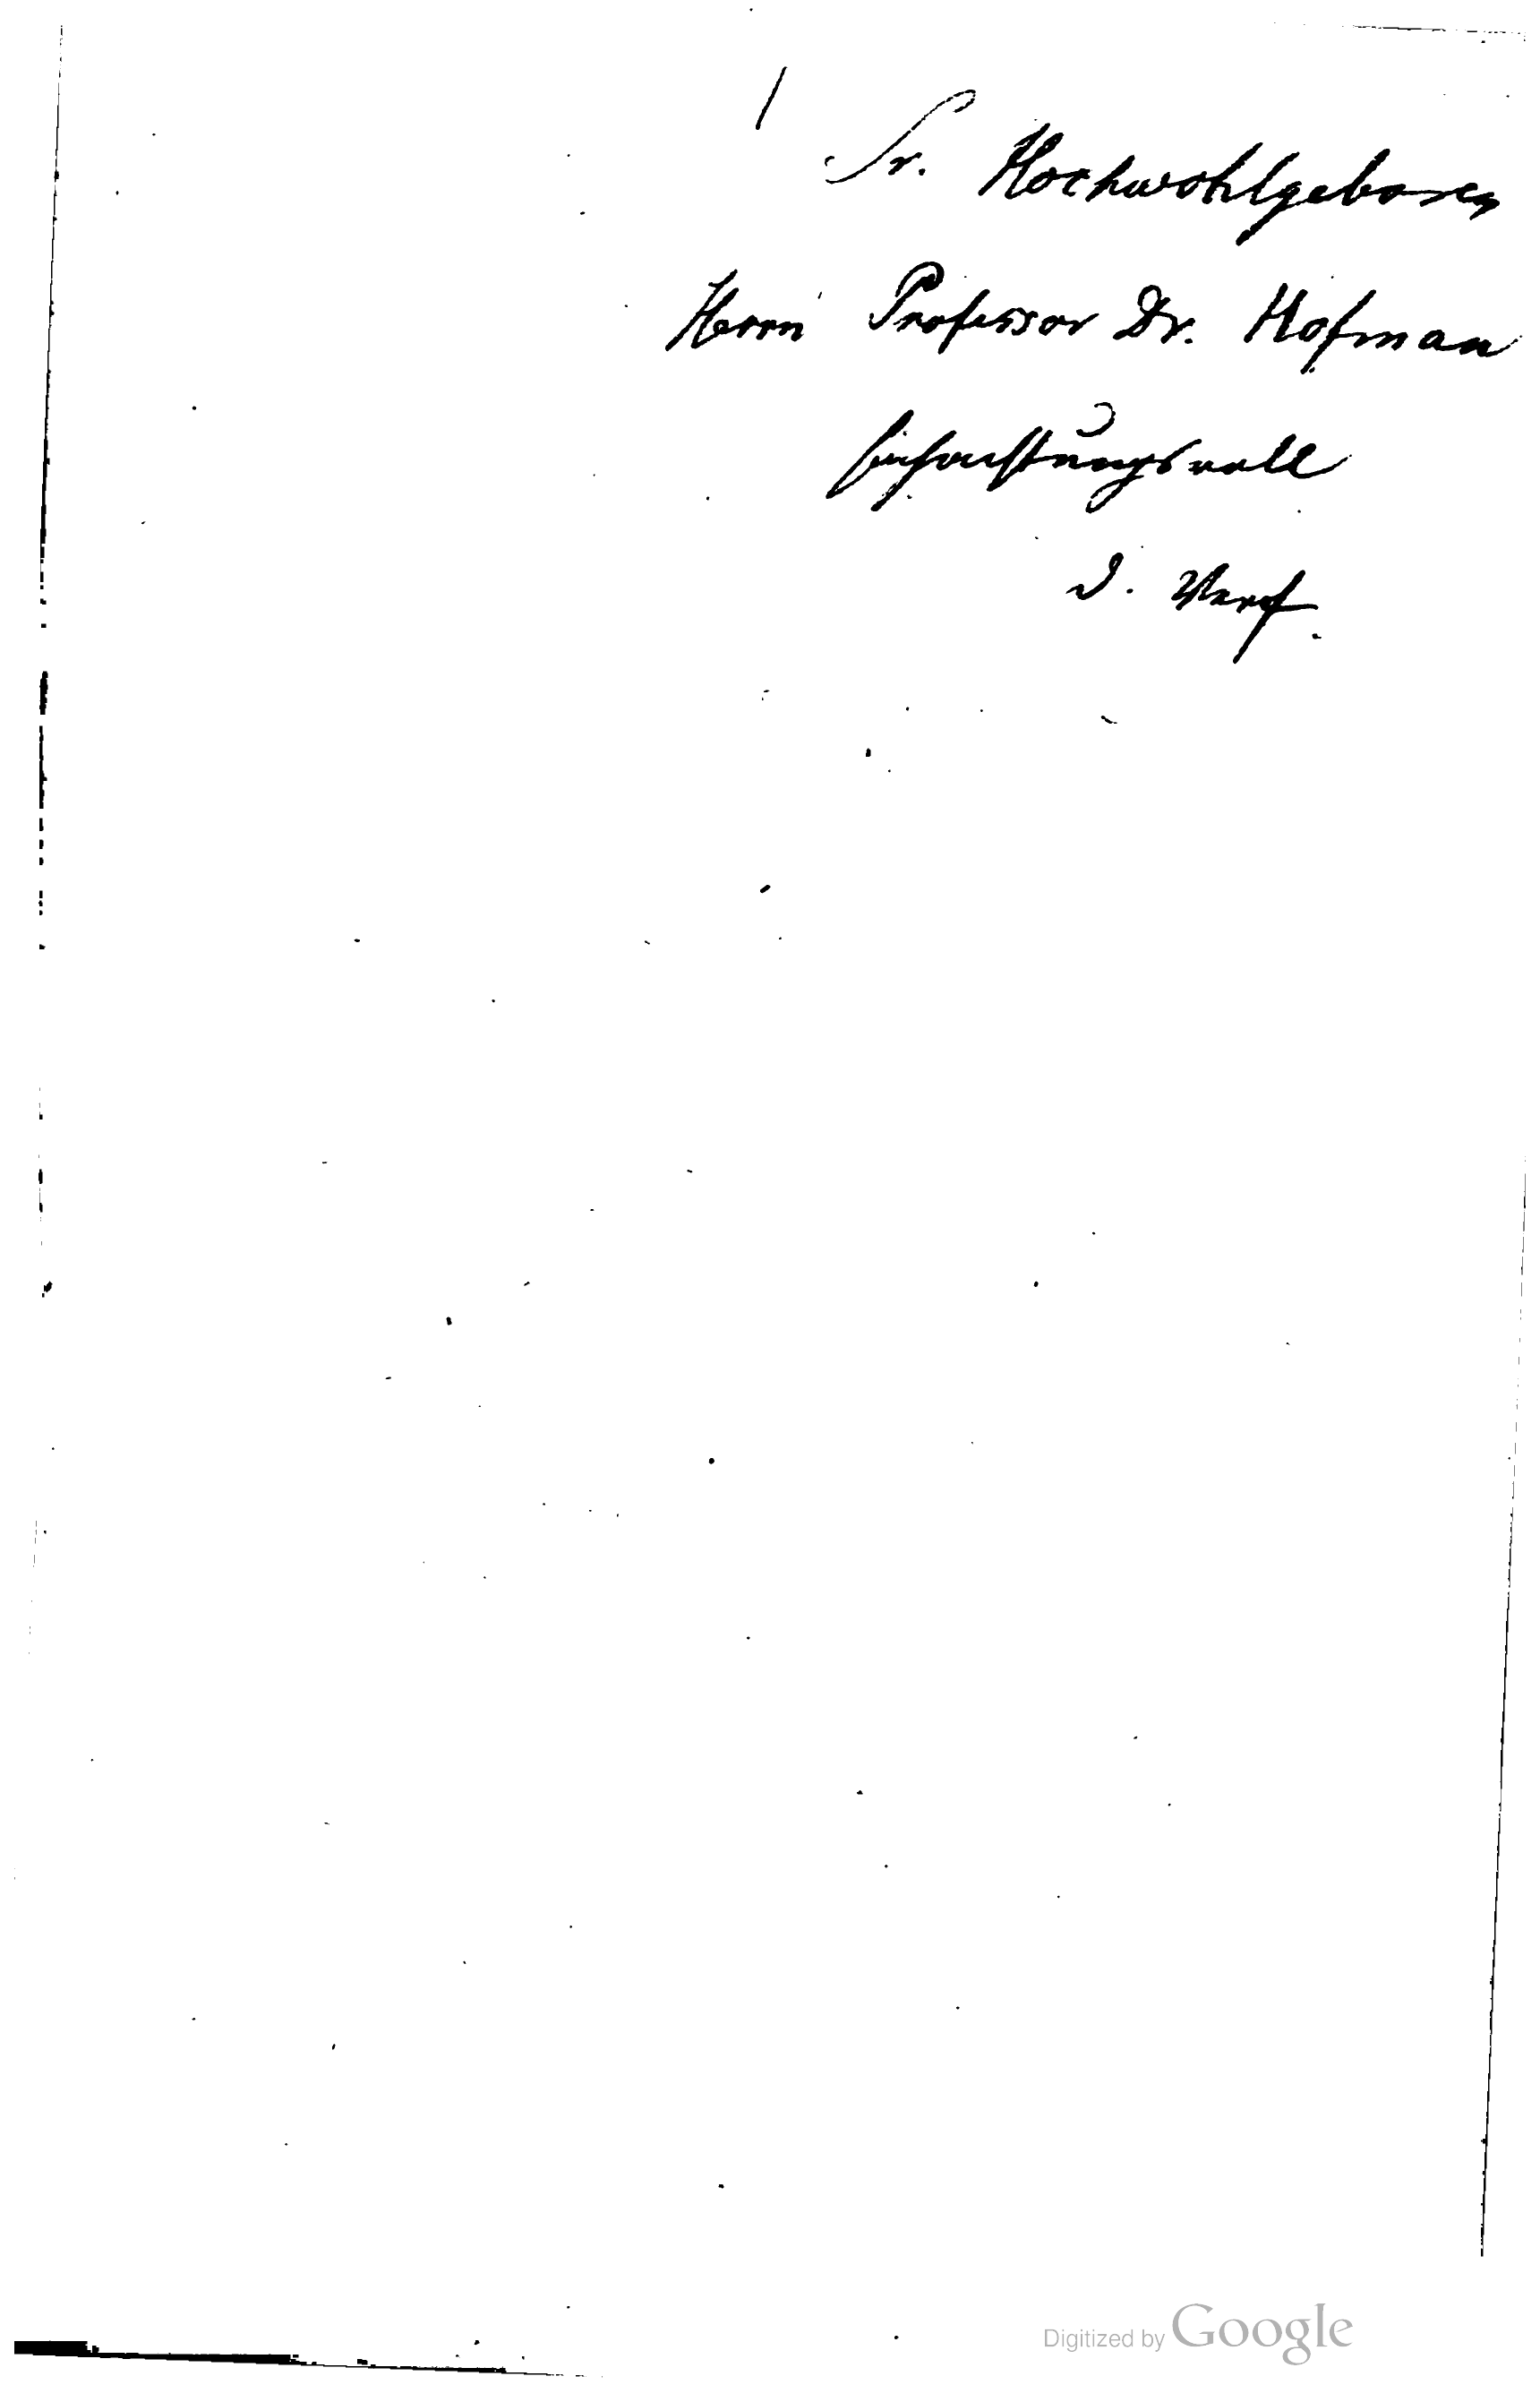 Sr. Hochwohlgeboren
Herrn Professor Dr. Hofman
hochachtungsvoll
d. Verf.
Digitized by Google